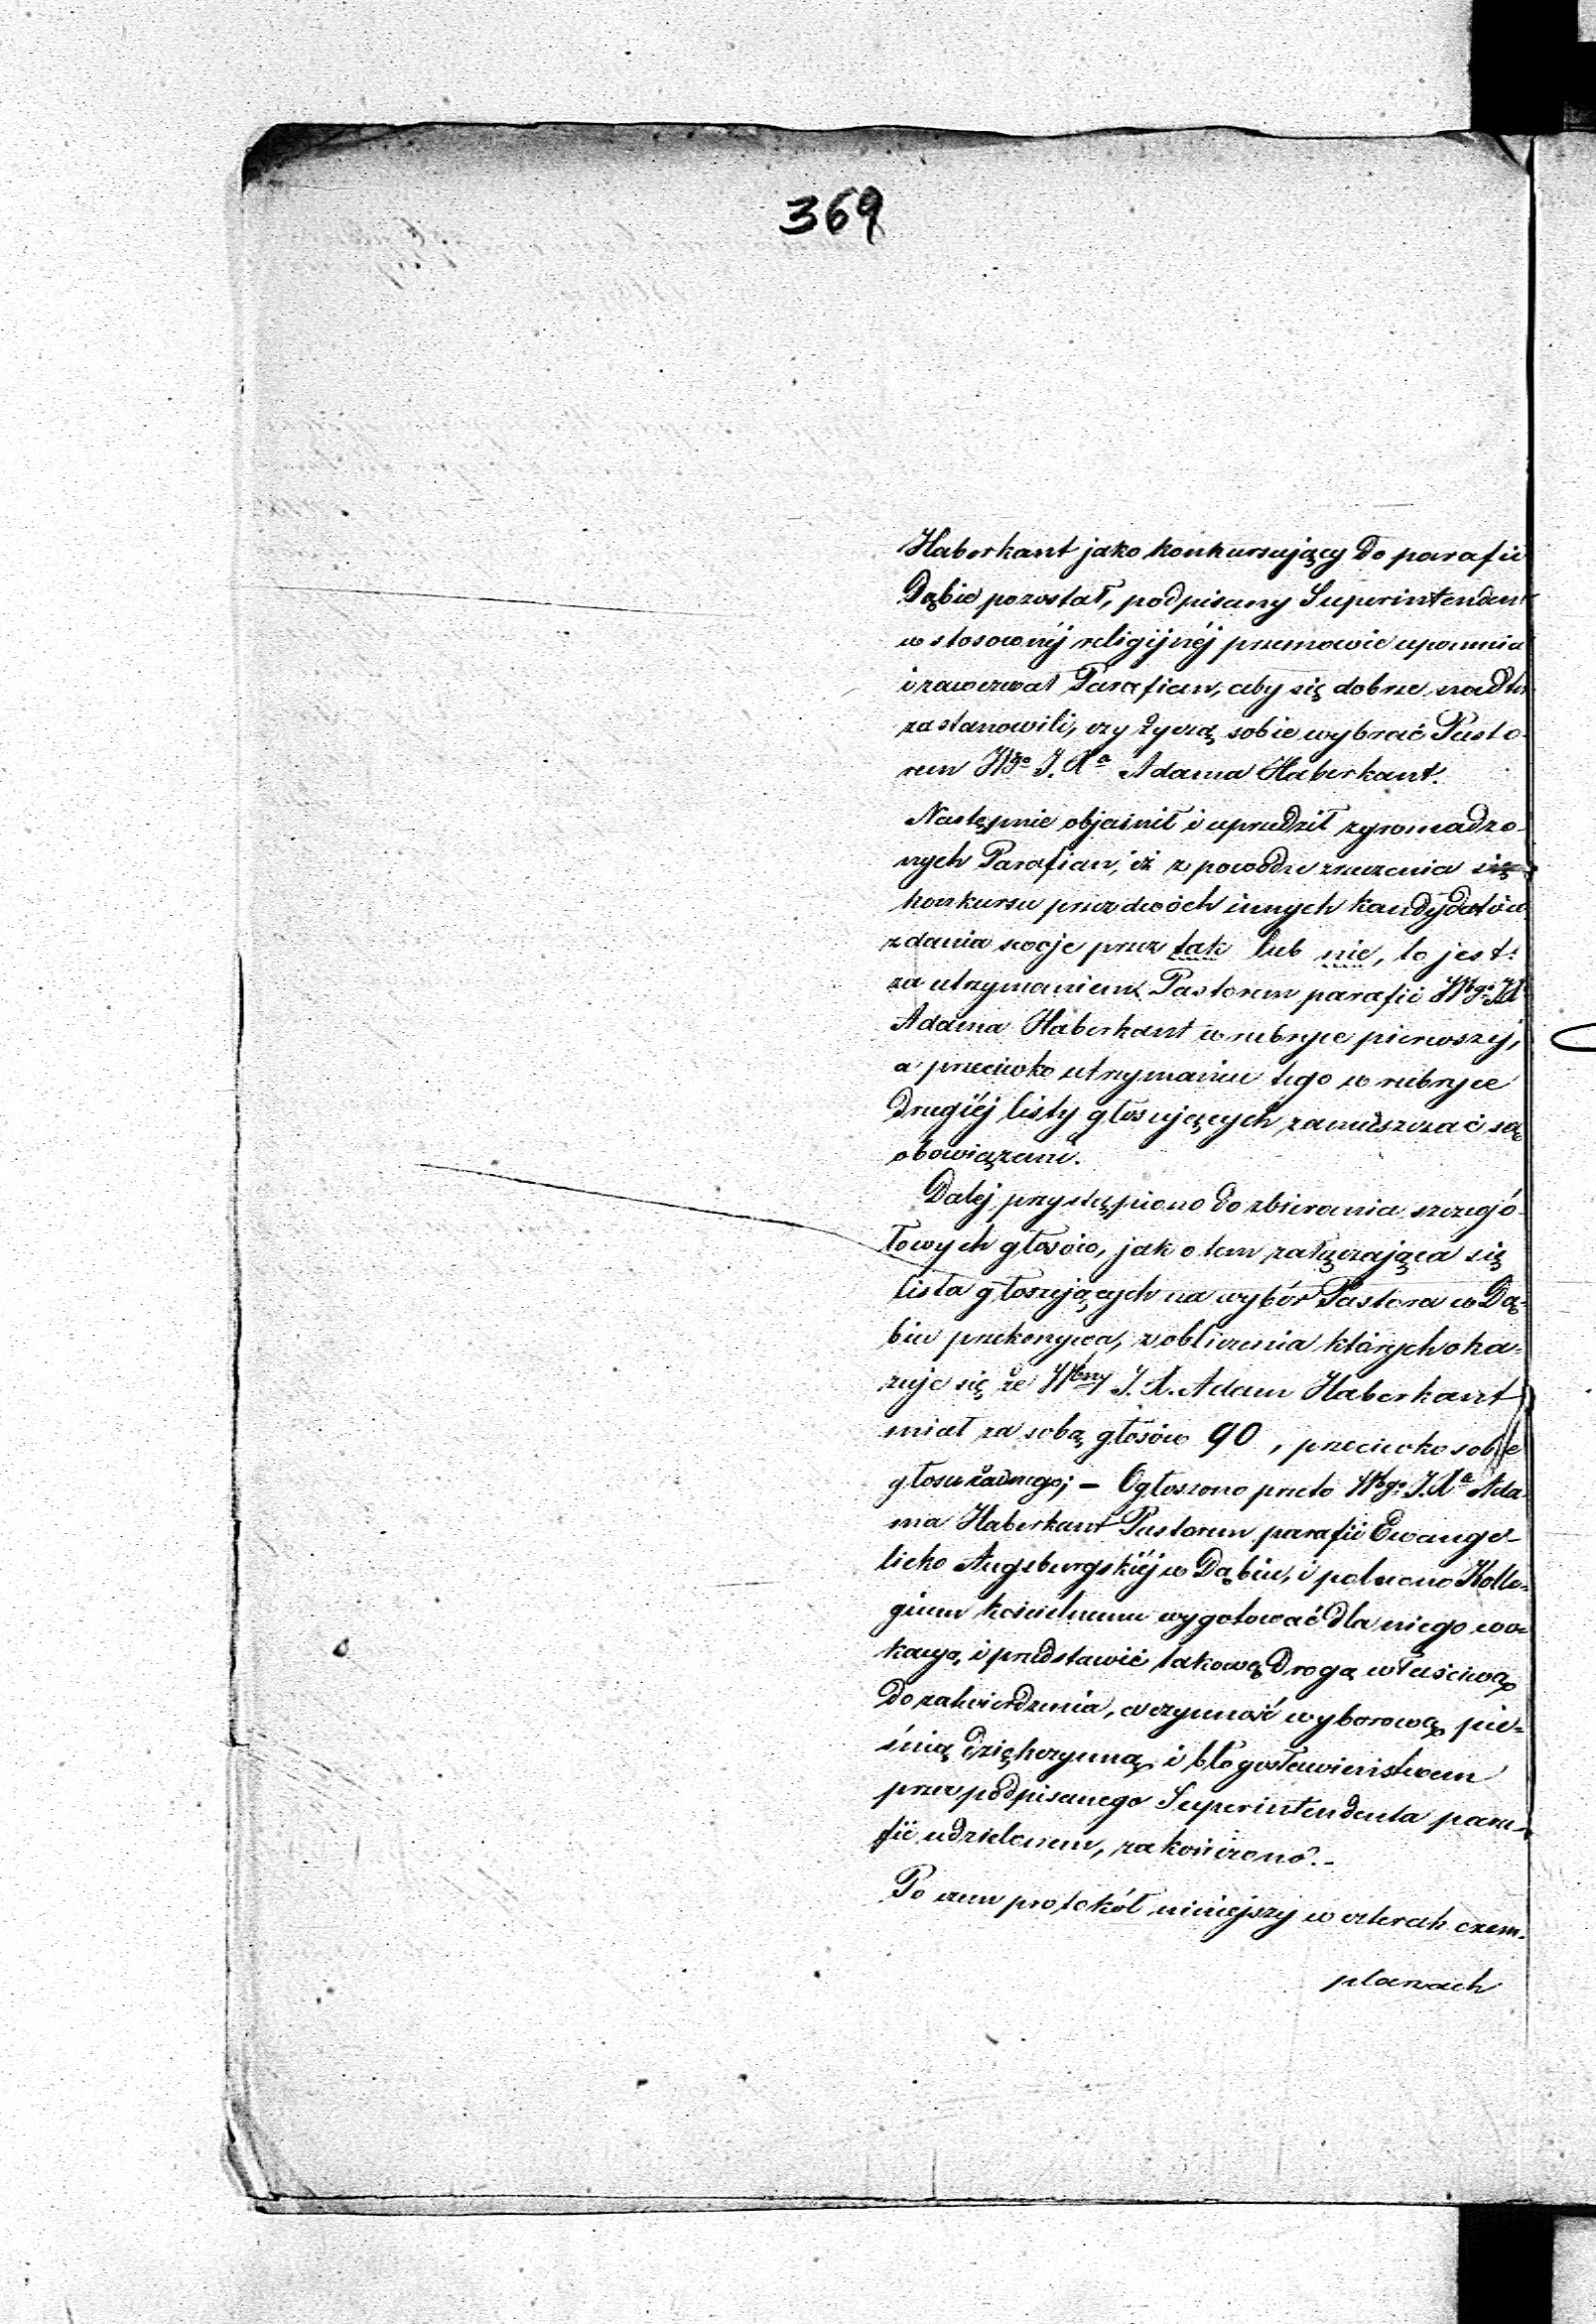 369
Haberkant jako konkursujący do parafii
Dąbie pozostał, podpisany Superintendent
w stosownéj religijnéj przemowie upomniał
i zawezwał Parafian, aby się dobrze nad tem
zastanowili, czy życzą sobie wybrać Pasto-
rem Wgo J. Xa Adama Haberkant.
Następnie objaśnił i uprzedził zgromadzo-
nych Parafian, iż z powodu zrzeczenia się
konkursu przez dwóch innych kandydatów
zdania swoje przez tak lub nie, to jest:
za utrzymaniem Pastorem parafii Wbgo JX
Adama Haberkant w rubryce pierwszéj,
a przeciwko utrzymaniu tego w rubryce
drugiéj listy głosujących zamieszczać są
obowiązani.
Daléj przystąpiono do zbierania szczegó-
łowych głosów, jak o tem załączająca się
lista głosujących na wybór Pastora w Dą-
biu przekonywa, z obliczenia których oka-
zuje się że Wbny J. X. Adam Haberkant
miał za sobą głosów 90, przeciwko sobie
głosu żadnego; – Ogłoszono przeto Wbgo J. Xa Ada-
ma Haberkant Pastorem parafii Ewange-
licko Augsburgskiéj w Dąbiu, i polecono Kolle-
gium kościelnemu wygotować dla niego wo-
kacyą, i przedstawić takową drogą właściwą
do zatwierdzenia, a czynność wyborową pie-
śnią dziękczynną i błogosławieństwem
przez podpisanego Superintendenta para-
fii udzielonem, zakończono. –
Po czem protokół niniejszy w czterech exem-
plarzach